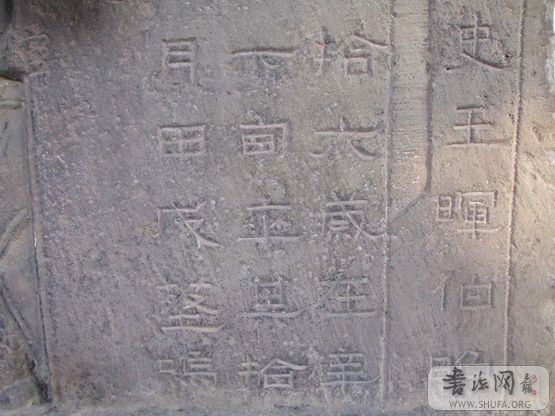 史王暉伯昭
拾六歲在辛
下旬卒其拾
月甲戌葬嗚
書法网
WWW.SHUFA.ORG